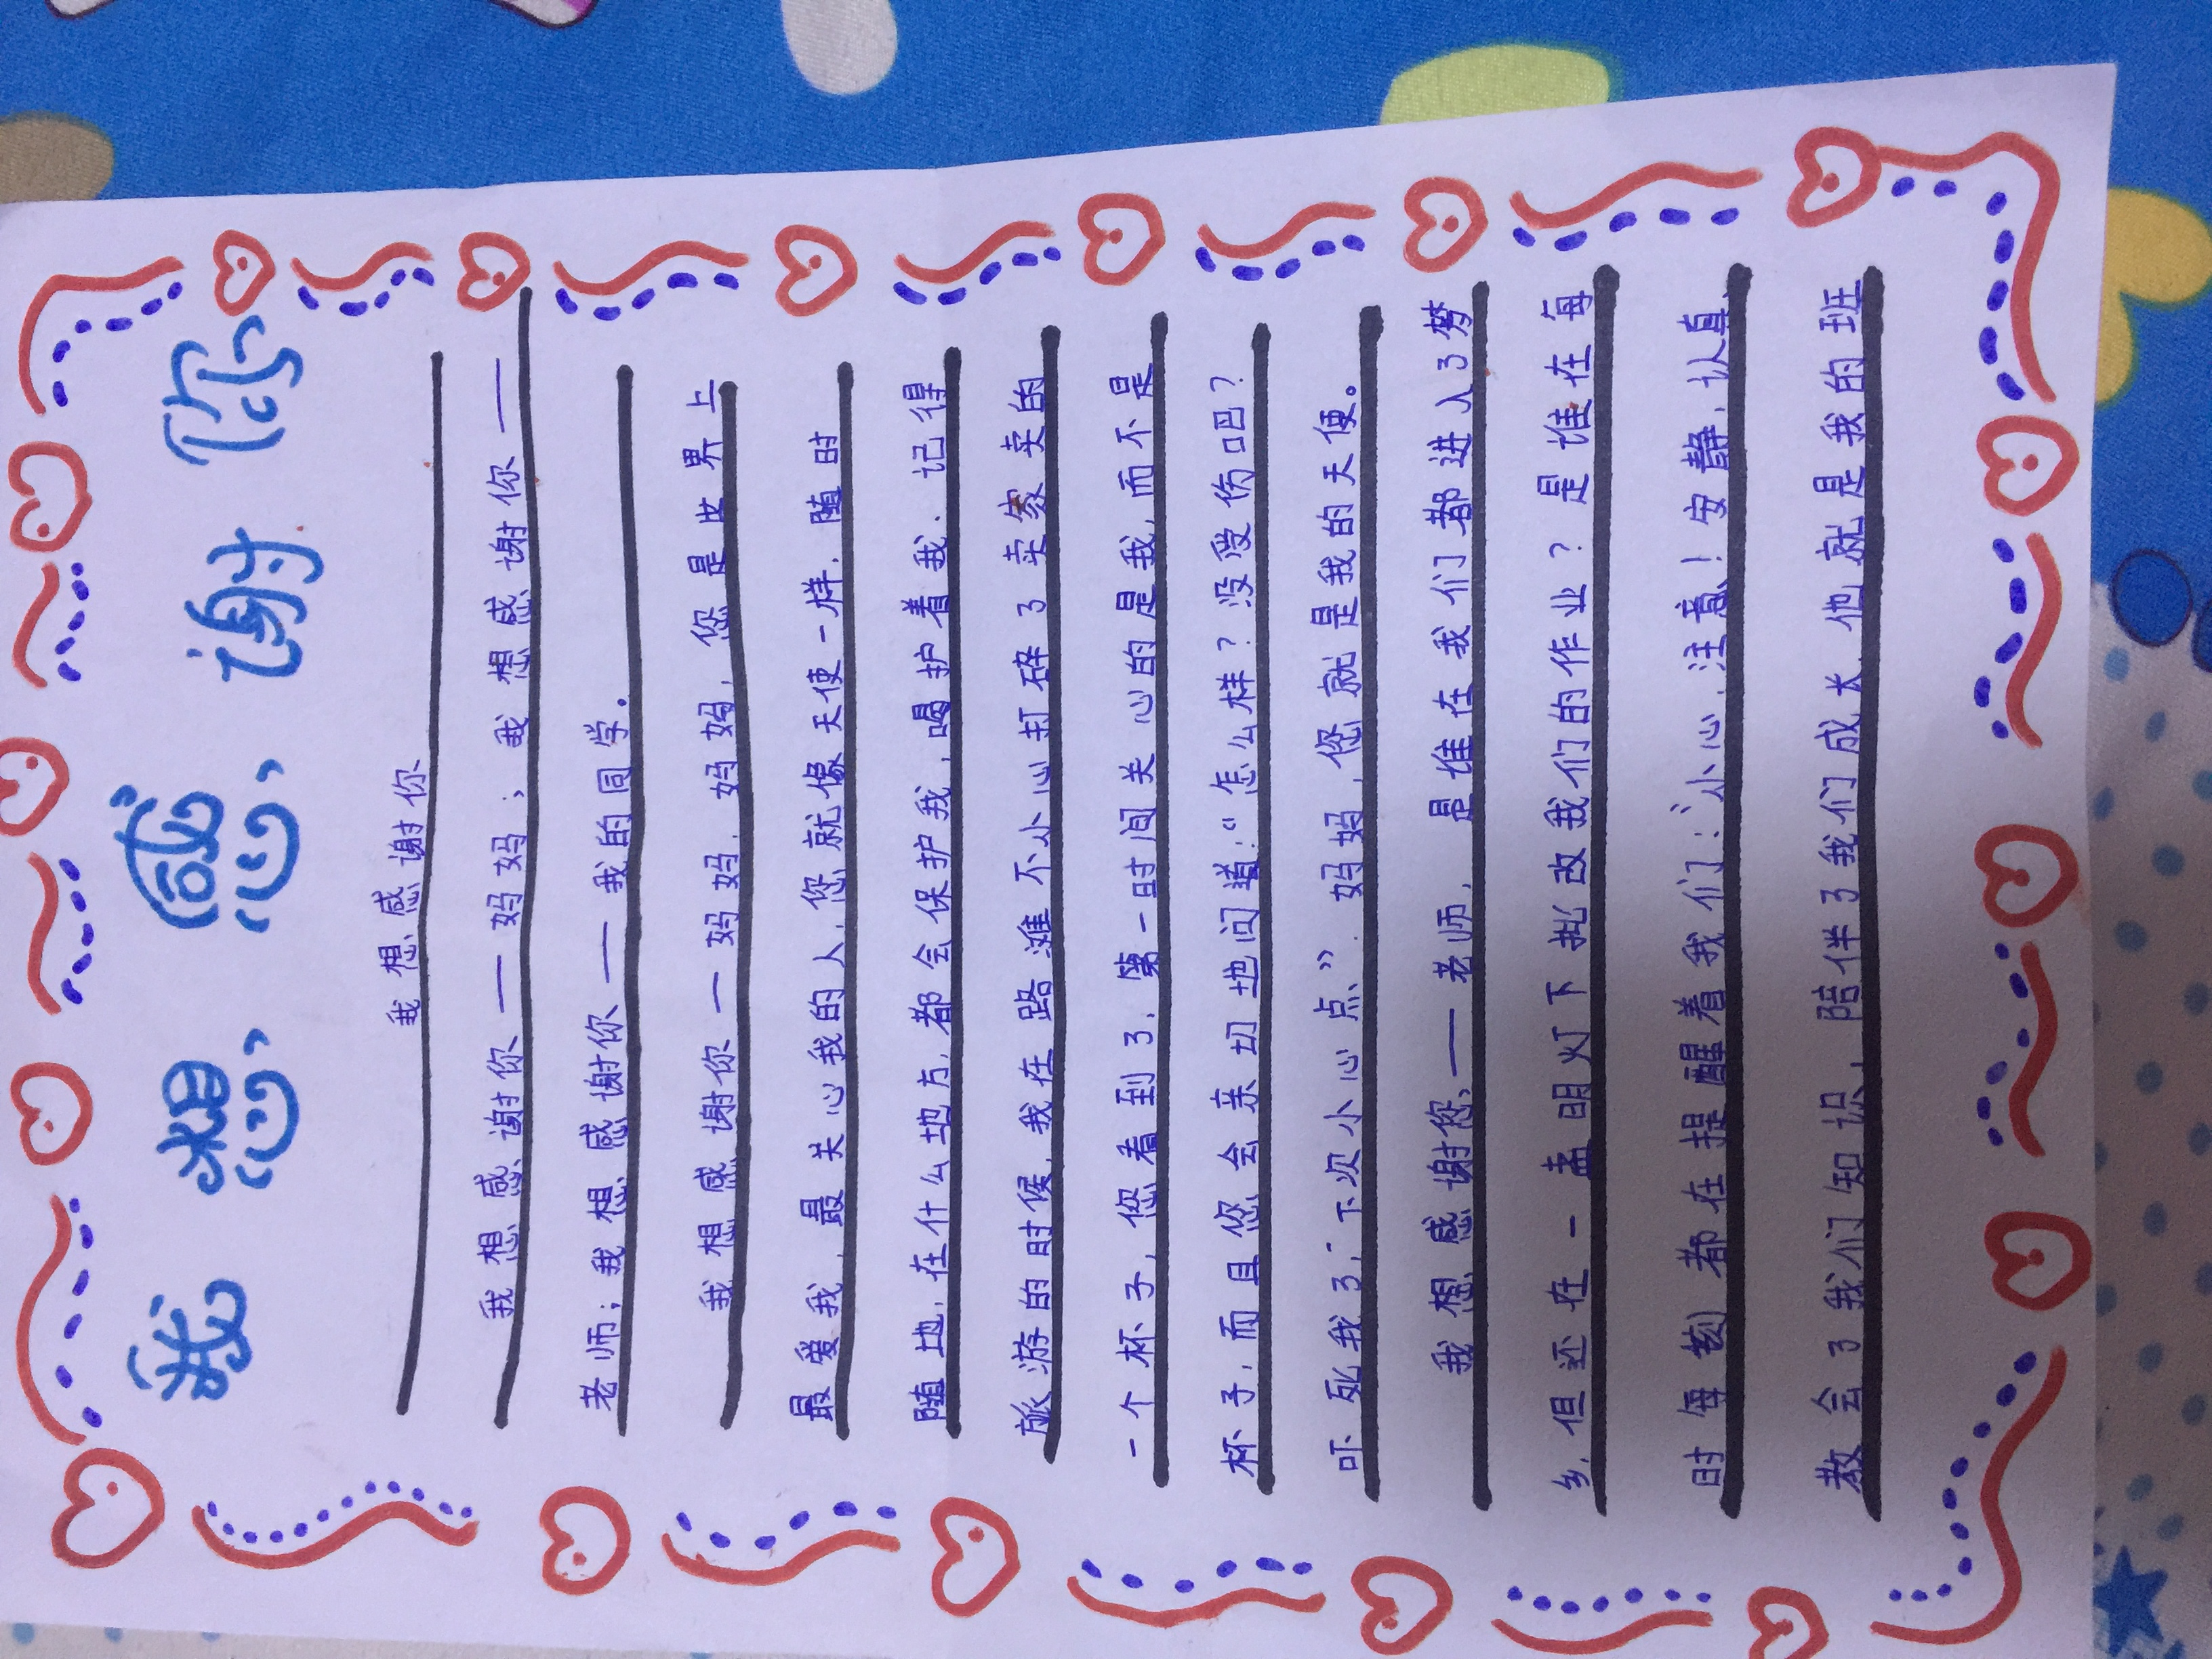 我想感谢你
我想感谢你
我想感谢你——妈妈；我想感谢你——
老师；我想感谢你——我的同学。
我想感谢你——妈妈。妈妈，您是世界上
最爱我，最关心我的人，您就像天使一样，随时
随地，在什么地方，都会保护我，喝护着我、记得
旅游的时候，我在路滩不小心打碎了卖家卖的
一个杯子，您看到了，第一时间关心的是我，而不是
杯子，而且您会亲切地问道：“怎么样？没受伤吧？
吓死我了，下次小心点”，妈妈，您就是我的天使。
我想感谢您，——老师，是谁在我们都进入了梦
乡，但还在一盏明灯下批改我们的作业？是谁在每
时每刻都在提醒着我们：“小心，注意！安静，认真
教会了我们知识，陪伴了我们成长，他就是我的班